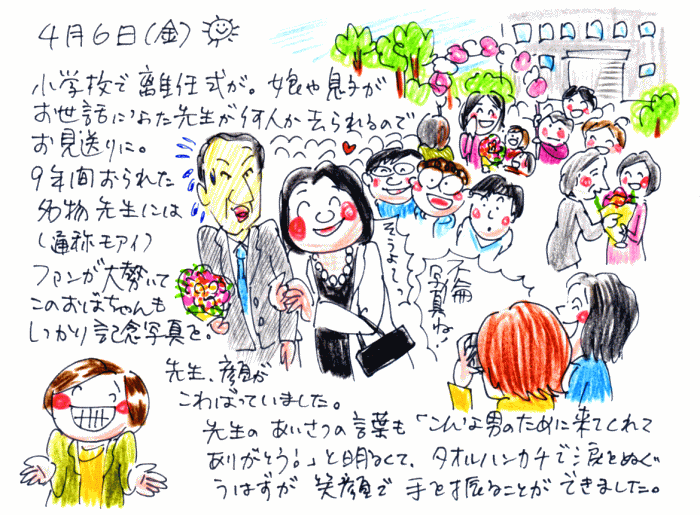 4月6日(金)
小学校で離任式が。娘や息子が
お世話になった先生が何人か去られるので
お見送りに。
9年間おられた
名物先生には
(通称モアイ)
ファンが大勢いて
このおばちゃんも
しっかり記念写真を。
そうよ〜っ
不倫
写真ね!
先生、顔が
こわばっていました。
先生のあいさつの言葉も「こんな男のために来てくれて
ありがとう!」と明るくて、タオルハンカチで涙をぬぐ
うはずが笑顔で手を振ることができました。